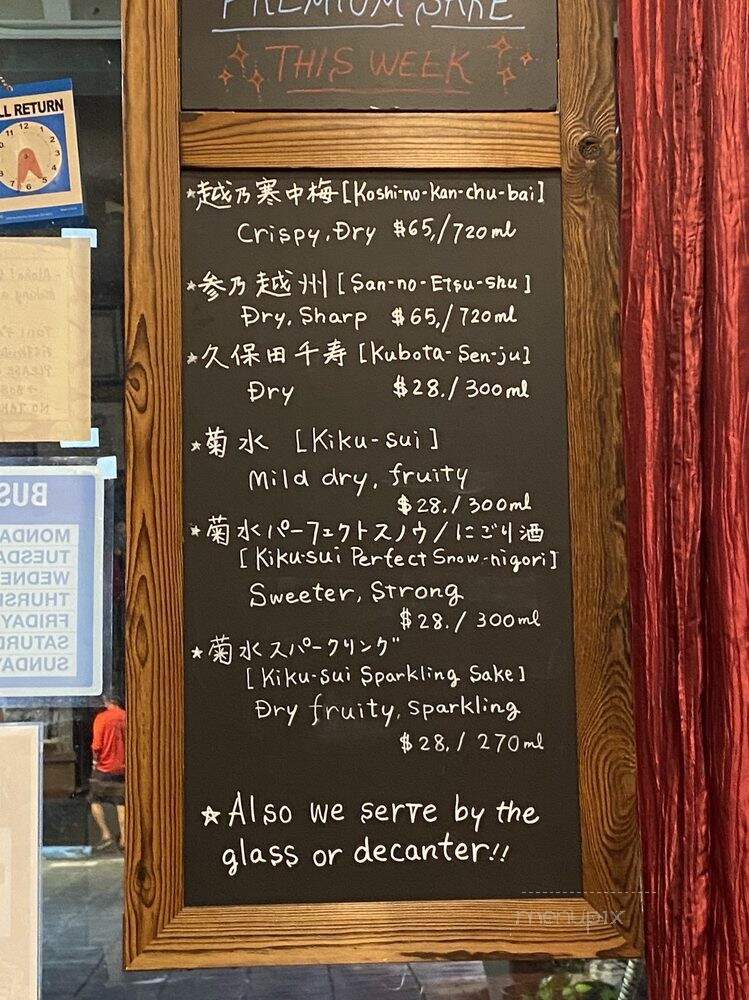 PREMIUM SAKE
THIS WEEK
LL RETURN
11 12 1
★越乃寒中梅[Koshi-no-Kan-chu-bai]
Crispy, Dry $65./720ml
★参乃越州[San-no-Etsu-shu]
Dry, Sharp $65./720ml
★久保田千寿[Kubota-Sen-ju]
Dry $28./300ml
★菊水 [Kiku-sui]
Mild dry, fruity
$28./300ml
★菊水パーフェクトスノウ/にごり酒
[Kiku-sui Perfect Snow-nigori]
Sweeter, Strong
$28./300ml
★菊水スパークリング
[Kiku-sui Sparkling Sake]
Dry fruity, sparkling
$28./270ml
★Also we serve by the
glass or decanter!!
BUS
MONDA
TUESDA
WEDNE
THURS
FRIDAY
SATURD
SUNDAY
menupix